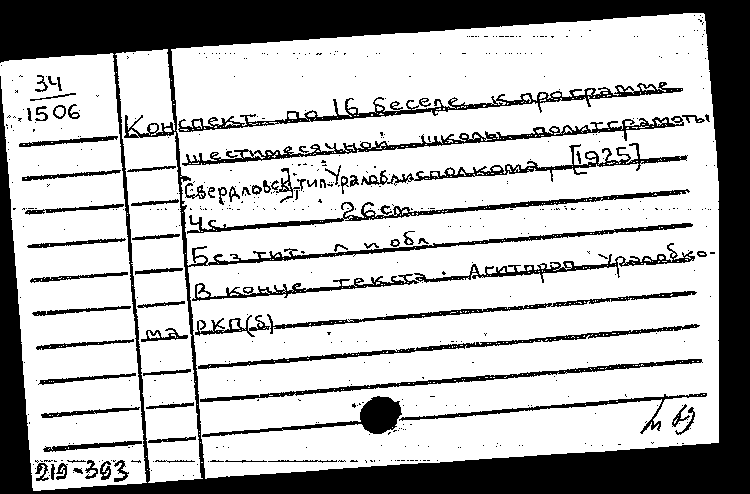 34
1506
Конспект по 16 беседе к программе
шестимесячной школы политграмоты
[Свердловск], тип. Уралоблисполкома, [1925]
4 с. 26 cm
Без тит. л и обл.
В конце текста: Агитпроп Уралобко-
ма РКП(б)
219-393